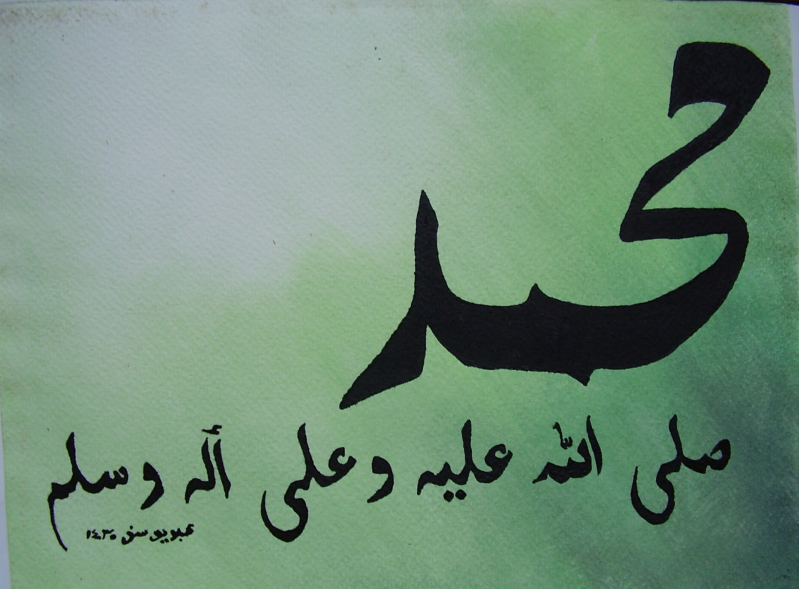 محمد
صلى الله عليه وعلى أله وسلم
١٤٣٠